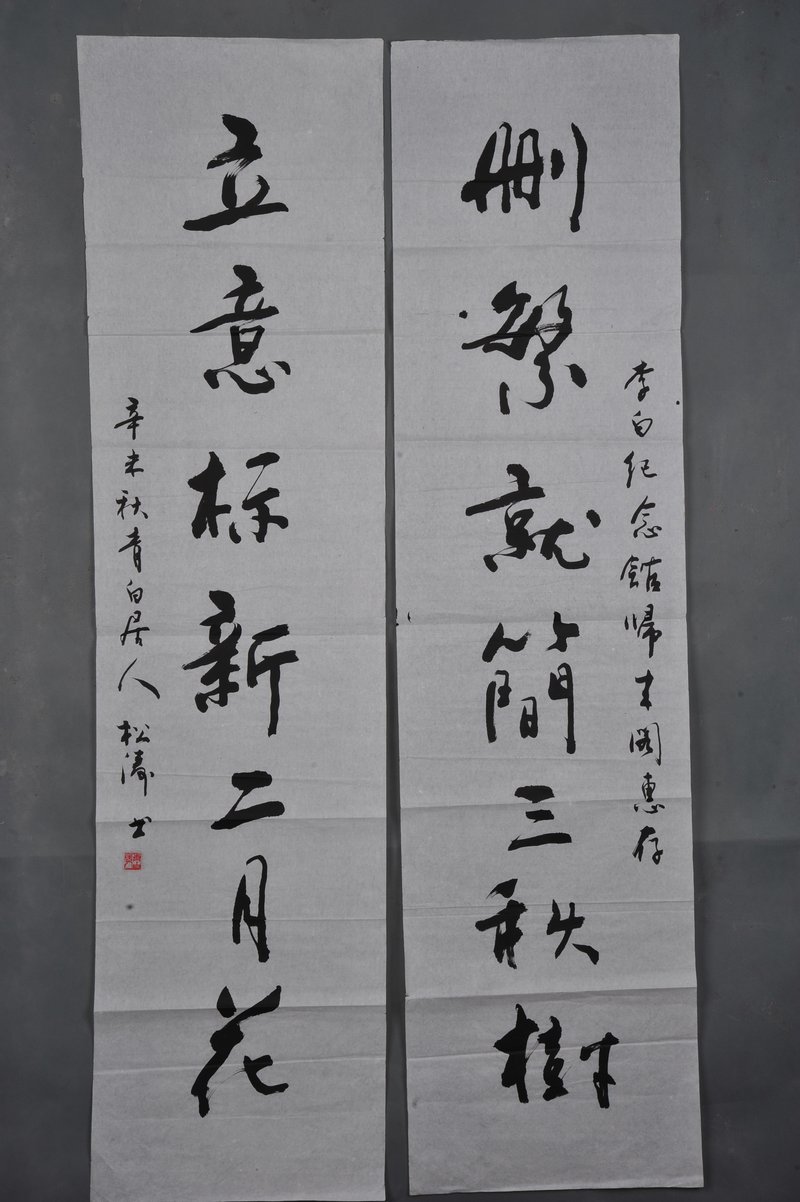 李白纪念館歸来阁惠存
删繁就簡三秋樹
立意标新二月花
辛未秋青白居人松濤书